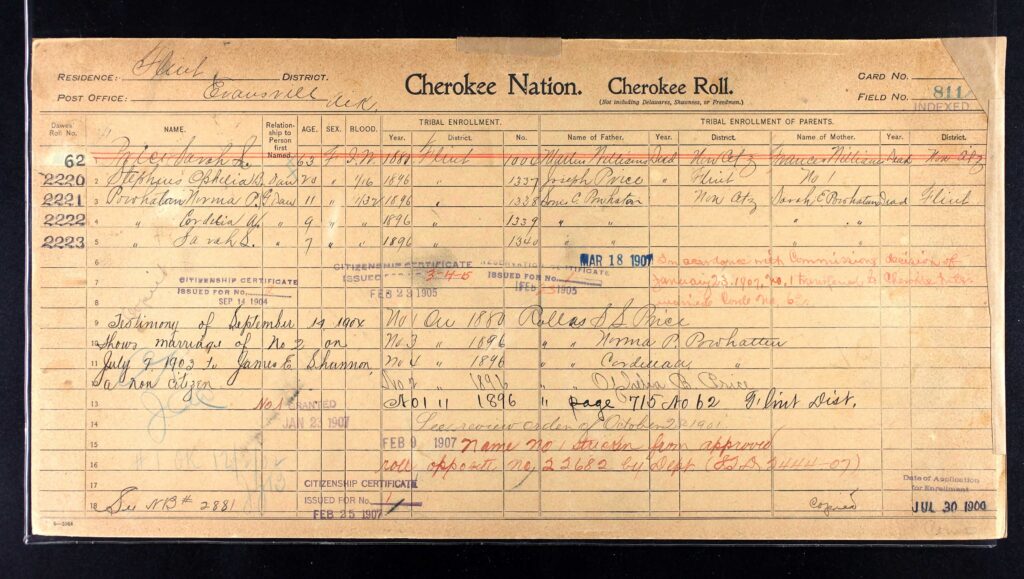 RESIDENCE: Flint DISTRICT.
POST OFFICE: Evansvill Ark.
Cherokee Nation. Cherokee Roll.
(Not including Delawares, Shawnees, or Freedmen.)
CARD NO.
FIELD NO. 811
INDEXED
Dawes' Roll No. NAME. Relationship to Person first Named. AGE. SEX. BLOOD. TRIBAL ENROLLMENT. Year. District. No. TRIBAL ENROLLMENT OF PARENTS. Name of Father. Year. District. Name of Mother. Year. District.
62 1 Price Sarah L. 63 F I.W. 1880 Flint 1000 Williams Dead Non Citz Frances Williams Dead Non Citz
2220 2 Stephens Ophelia B. Dau 20 " 1/16 1896 " 1337 Joseph Price " Flint No 1
2221 3 Powhatan Norma P. G Dau 11 " 1/32 1896 " 1338 C. Powhatan Non Citz Sarah E. Powhatan Dead Flint
2222 4 " Cordelia A. " 9 " " 1896 " 1339 " " " "
2223 5 " Sarah S. " 7 " " 1896 " 1340 " " " "
6 CITIZENSHIP CERTIFICATE ISSUED 3-4-5 FEB 23 1905
CERTIFICATE ISSUED FOR No. FEB 23 1905
MAR 18 1907 In accordance with Commissions decision of
7 January 23, 1907, No. 1 transferred to Cherokee by
8 marriage Card No. 62
CITIZENSHIP CERTIFICATE
ISSUED FOR No. 2
SEP 14 1904
9 Testimony of September 19 190 No 1 On 1880 Rollas S L Price
10 shows marriage of No 2 on No 3 " 1896 " " Norma P. Powhatten
11 July 9 1903 to James E. Shannon, No 4 " 1896 " " "
12 a non citizen No 2 " 1896 " " B Price
13 No 1 " 1896 " page 715 No 62 Flint Dist.
No. 1 GRANTED
JAN 23 1907
14 See review order of October 1901
15 FEB 9 1907 Name No 1 stricken from approved
16 roll opposite no. 22682 by Dept (I.T.D. 2444-07)
CITIZENSHIP CERTIFICATE
ISSUED FOR No. 1
FEB 25 1907
18 See NB# 2881
Copied
Date of Application
for Enrollment
JUL 30 1900